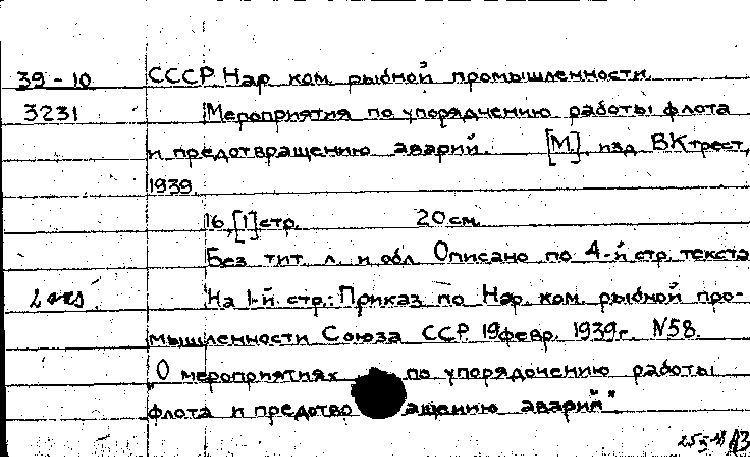 39-10 СССР. Нар. ком. рыбной промышленности.
3231 Мероприятия по упорядчению работы флота
и предотвращению аварий. [М], изд. ВКтрест,
1939.
16,[1] стр. 20 см.
Без тит. л. и обл. Описано по 4-й стр. текста
2 экз На 1-й стр.: Приказ по Нар. ком. рыбной про-
мышленности Союза ССР. 19 февр. 1939 г. N58.
"О мероприятиях по упорядочению работы
флота и предотво ащению аварий".